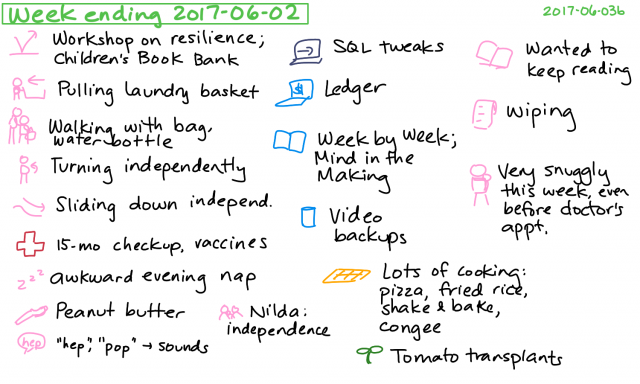 Week ending 2017-06-02
2017-06-03b
Workshop on resilience;
Children's Book Bank
Pulling laundry basket
Walking with bag,
water bottle
Turning independently
Sliding down independ.
15-mo checkup, vaccines
zzz
awkward evening nap
Peanut butter
Nilda:
independence
hep
"hep", "pop" → sounds
SQL tweaks
$
Ledger
Week by Week;
Mind in the
Making
Video
backups
Lots of cooking:
pizza, fried rice,
shake & bake,
congee
Tomato transplants
Wanted to
keep reading
Wiping
Very snuggly
this week, even
before doctor's
appt.